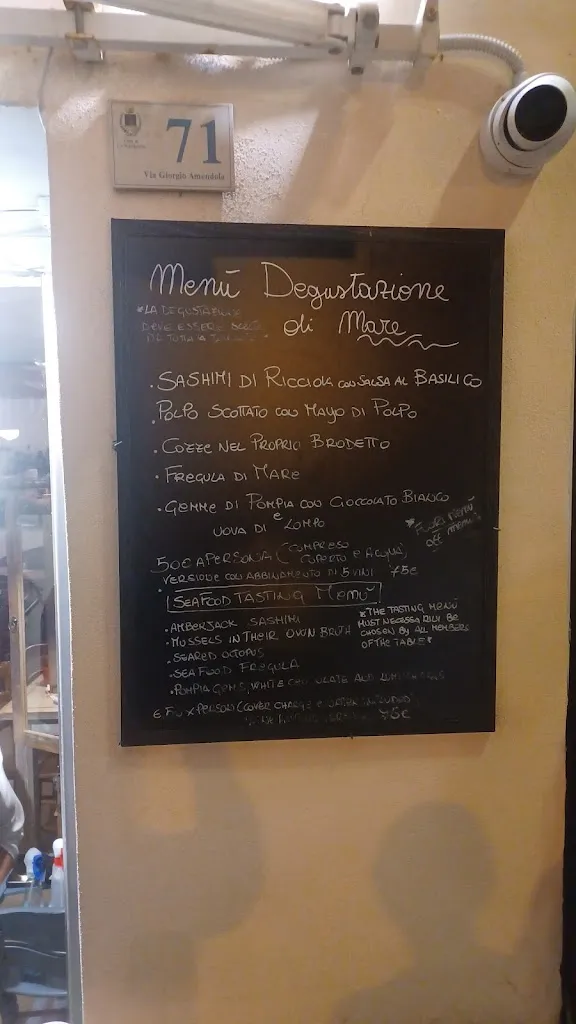 71
Via Giorgio Amendola
Menù Degustazione
di Mare
*LA DEGUSTAZIONE
DEVE ESSERE
DA TUTTA
• SASHIMI DI RICCIOLA CON SALSA AL BASILICO
• POLPO SCOTTATO CON MAYO DI POLPO
• COZZE NEL PROPRIO BRODETTO
• FREGULA DI MARE
• GEMME DI POMPIA CON CIOCCOLATO BIANCO
e
UOVA DI LOMPO
* FUORI MENÙ
off menù
50€ A PERSONA (COMPRESO
COPERTO E ACQUA)
VERSIONE CON ABBINAMENTO DI 5 VINI 75€
SEAFOOD TASTING MENÙ
• AMBERJACK SASHIMI
• MUSSELS IN THEIR OWN BROTH
• SEARED OCTOPUS
• SEA FOOD FREGULA
• POMPIA GEMS, WHITE CHOCOLATE AND
* THE TASTING MENÙ
MUST NECESSARILY BE
CHOSEN BY ALL MEMBERS
OF THE TABLE *
PERSON (COVER CHARGE E WATER INCLUDED)
75€